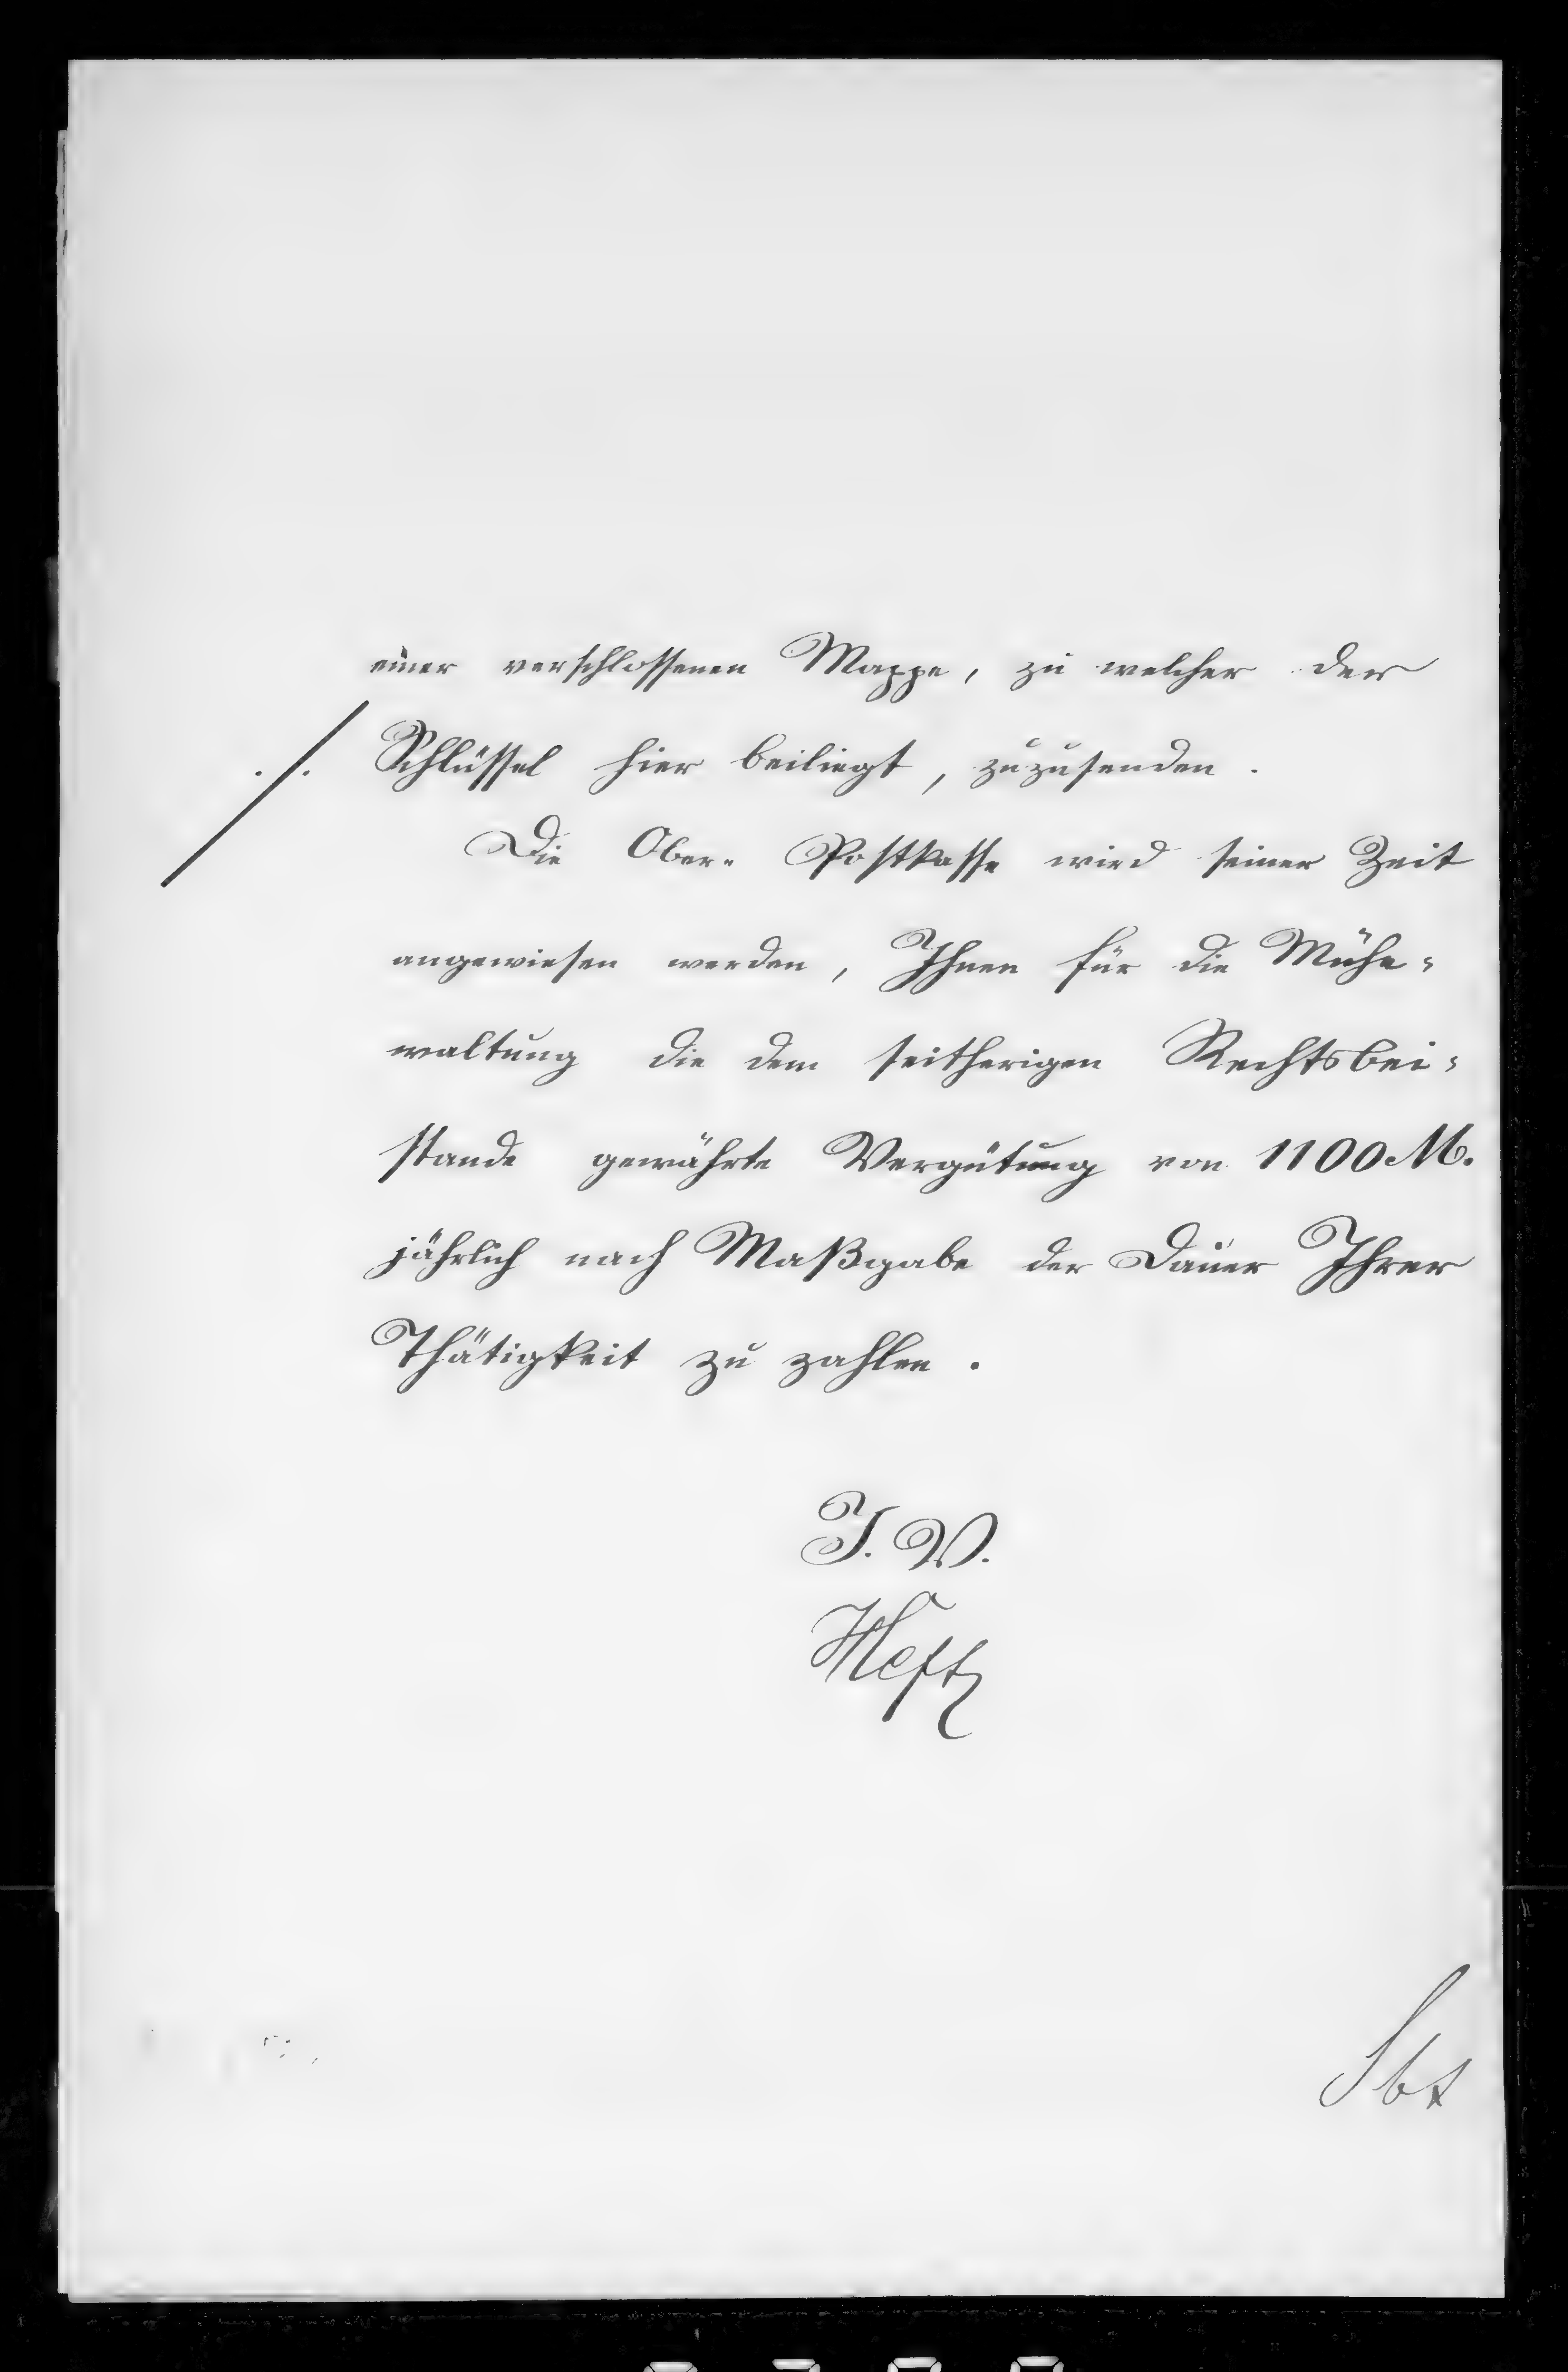 einer verschlossenen Mappe, zu welcher der
./. Schlüssel hier beiliegt, zuzusenden.
Die Ober- Postkasse wird seiner Zeit
angewiesen werden, Ihnen für die Mühe-
waltung die dem seitherigen Rechtsbei-
stande gewährte Vergütung von 1100 M.
jährlich nach Maßgabe der Dauer Ihrer
Thätigkeit zu zahlen.
I. V.